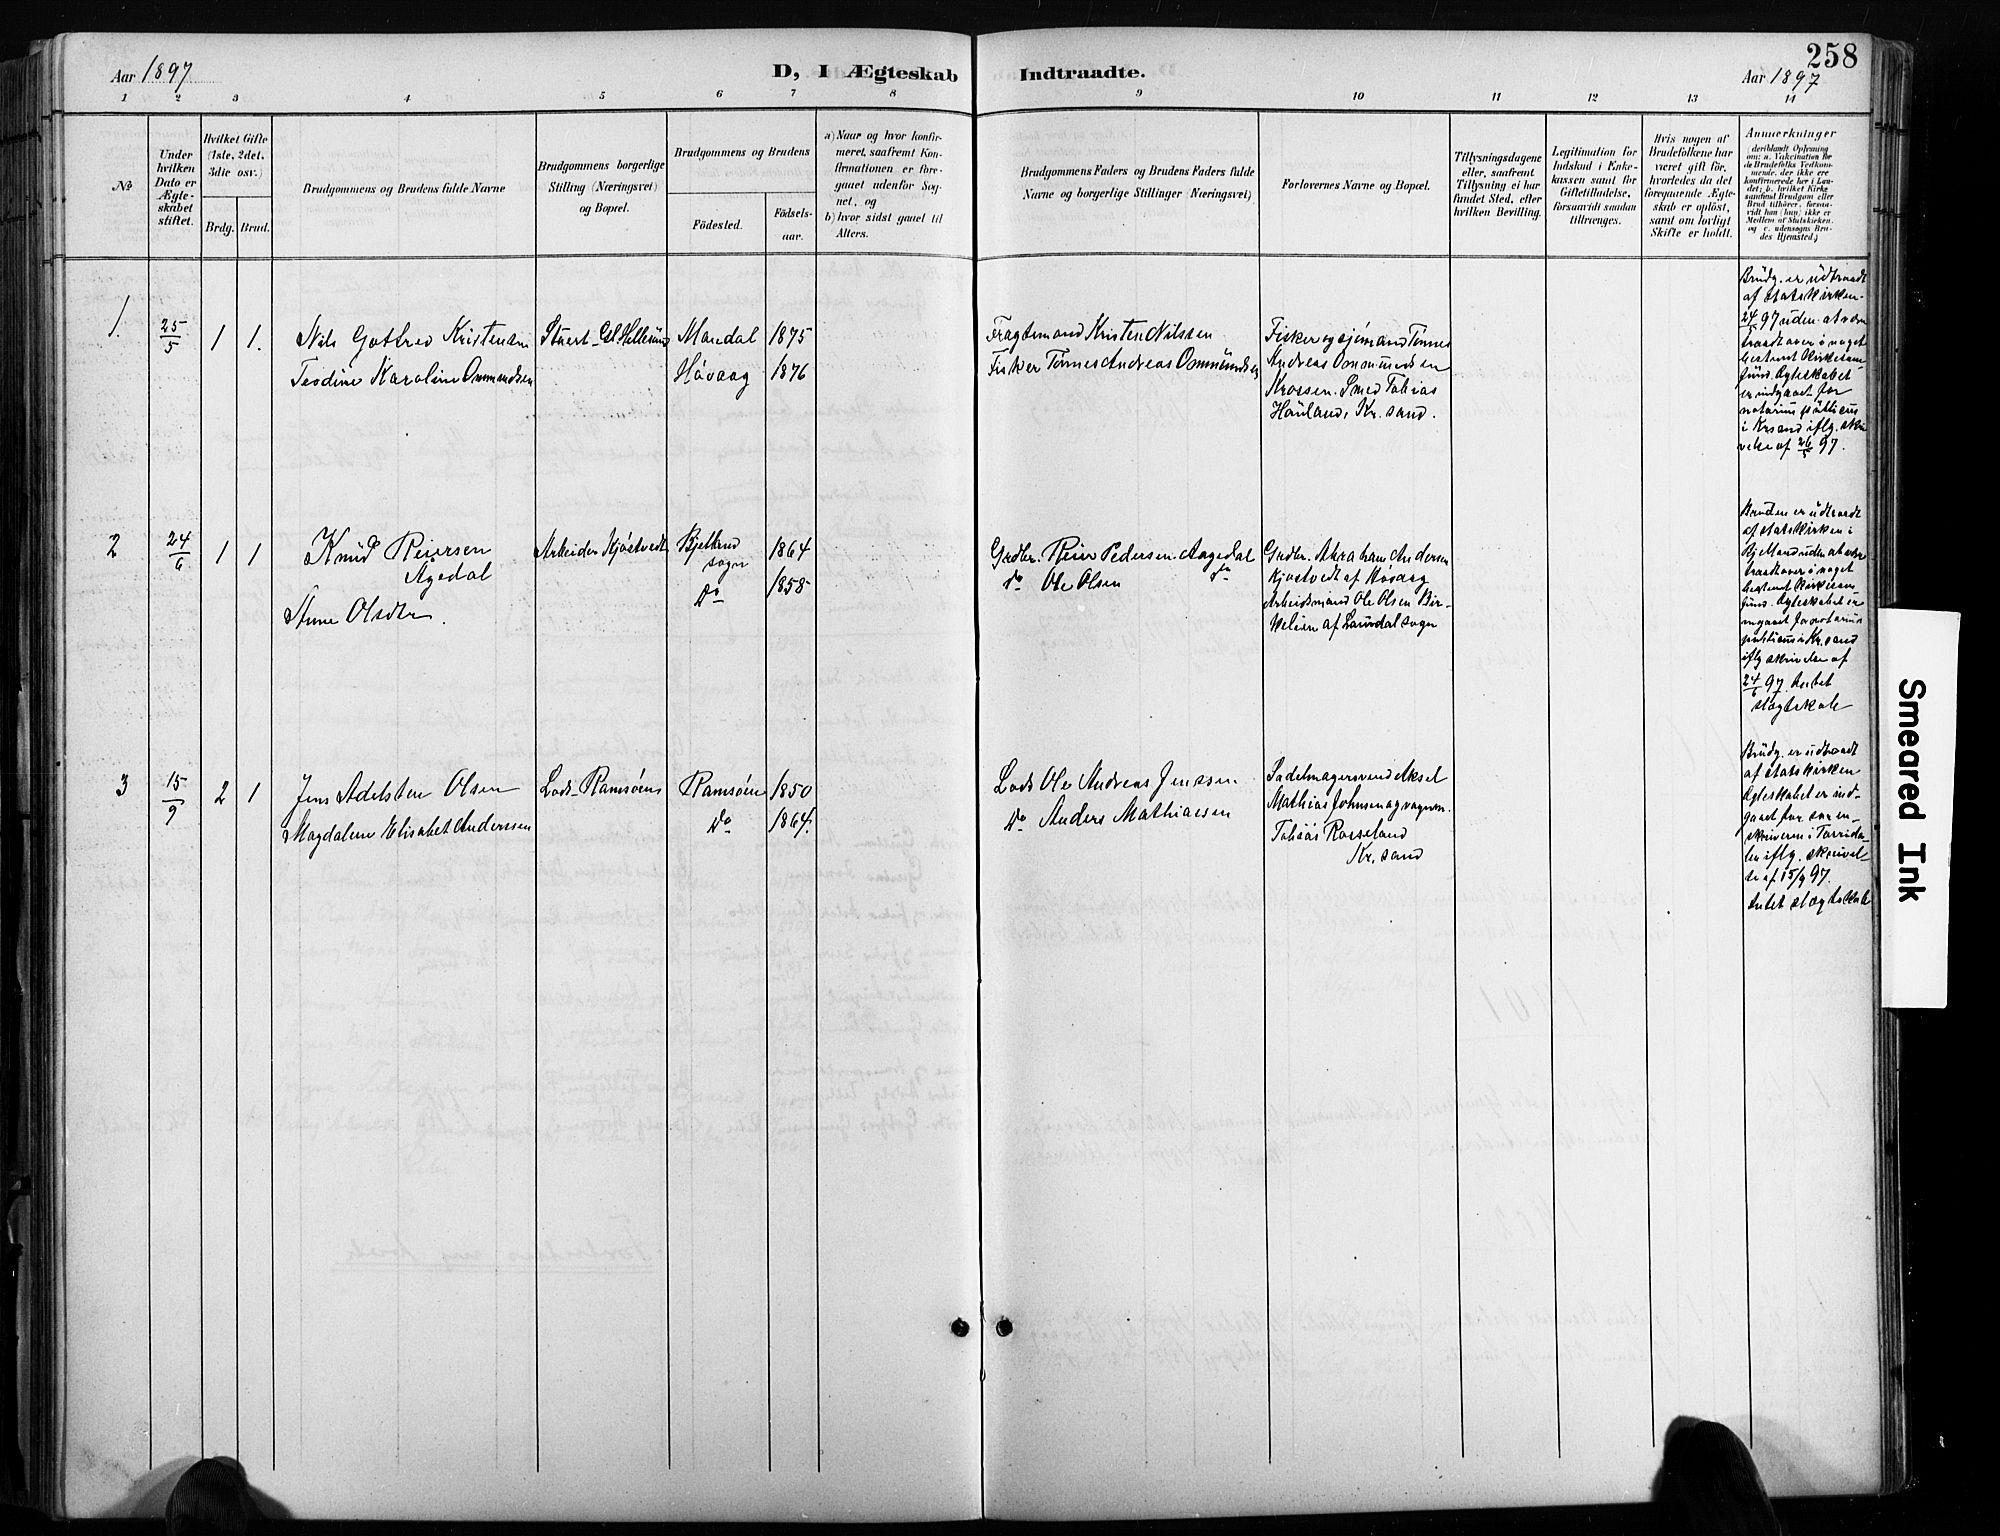 258
Aar 1897
D, I Ægteskab Indtraadte.
Aar 1897
1 2 3 4 5 6 7 8 9 10 11 12 13 14
No
Under hvilken Dato er Ægteskabet stiftet.
Hvilket Gifte (1ste, 2det, 3die osv.)
Brdg. Brud.
Brudgommens og Brudens fulde Navne
Brudgommens borgerlige Stilling (Næringsvei) og Bopæl.
Brudgommens og Brudens
Fødested.
Fødselsaar.
a) Naar og hvor konfirmeret, saafremt Konfirmationen er foregaaet udenfor Sognet, og
b) hvor sidst gaaet til Alters.
Brudgommens Faders og Brudens Faders fulde Navne og borgerlige Stillinger (Næringsvei)
Forlovernes Navne og Bopæl.
Tillysningsdagene eller, saafremt Tillysning ei har fundet Sted, efter hvilken Bevilling.
Legitimation for Indskud i Enkekassen samt for Giftetilladelse, forsaavidt saadan tiltrænges.
Hvis nogen af Brudefolkene har været gift før, hvorledes da det foregaaende Ægteskab er opløst, samt om lovligt Skifte er holdt.
Anmerkninger
deriblandt Oplysning om: a. Vaccination for de Brudefolks Vedkommende, der ikke ere konfirmerede her i Landet; b. hvilket Kirkesamfund Brudgom eller Brud tilhører, forsaavidt han (hun) ikke er Medlem af Statskirken, og c. udensogns Brudes Hjemsted.)
1. 25/5 1 1. Nils Gotfred Kristensen
Teodine Karoline Ommundsen
Gl. Hellesund
Mandal 1875
Høvaag 1876
Fragtemand Kristen Nilssen
Fisker Tønnes Andreas Ommundsen
Fisker og sjømand Tønnes
Andreas Ommundsen
Krossen. Smed Tobias
Hauland, Kr.sand.
Brudg. er udtraadt
af statskirken
24/5 97 uden at være
traadt over i noget
bestemt kirkesam-
fund. Ægteskabet
er indgaaet for
notarius publicus
i Krsand iflg. skri
velse af 26/5 97.
2 24/6 1 1 Knud Reiersen
Agedal
Anne Olsdtr.
Arbeider Kjøstvedt
Bjelland
sogn 1864
Do 1858
Grdbr. Reier Pedersen Aagedal
do Ole Olsen do
Grdbr. Abraham Andersen
Kjøstvedt af Høvaag
Arbeidsmand Ole Olsen Bir-
kelien af Laudal sogn
Bruden er udtraadt
af statskirken i
Bjelland uden at være
traadt over i noget
bestemt kirkesam-
fund. Ægteskabet er
indgaaet for notarius
publicus i Kr.sand
iflg skrivelse af
24/6 97. Intet
slægtskab
3 15/9 2 1 Jens Adelsten Olsen
Magdalene Elisabet Anderssen
Lods - Ramsøen
Ramsøen 1850
Do 1864.
Lods Ole Andreas Jenssen
Do Anders Mathiassen
Sadelmagersvend Aksel
Mathias Johnsen og vognm.
Tobias Rosseland
Kr.sand
Brudg. er udtraadt
af statskirken
Ægteskabet er ind-
gaaet for soren-
skriveren i Torrida-
len iflg. skrivel-
se af 15/9 97.
Intet slægtskab
Smeared Ink